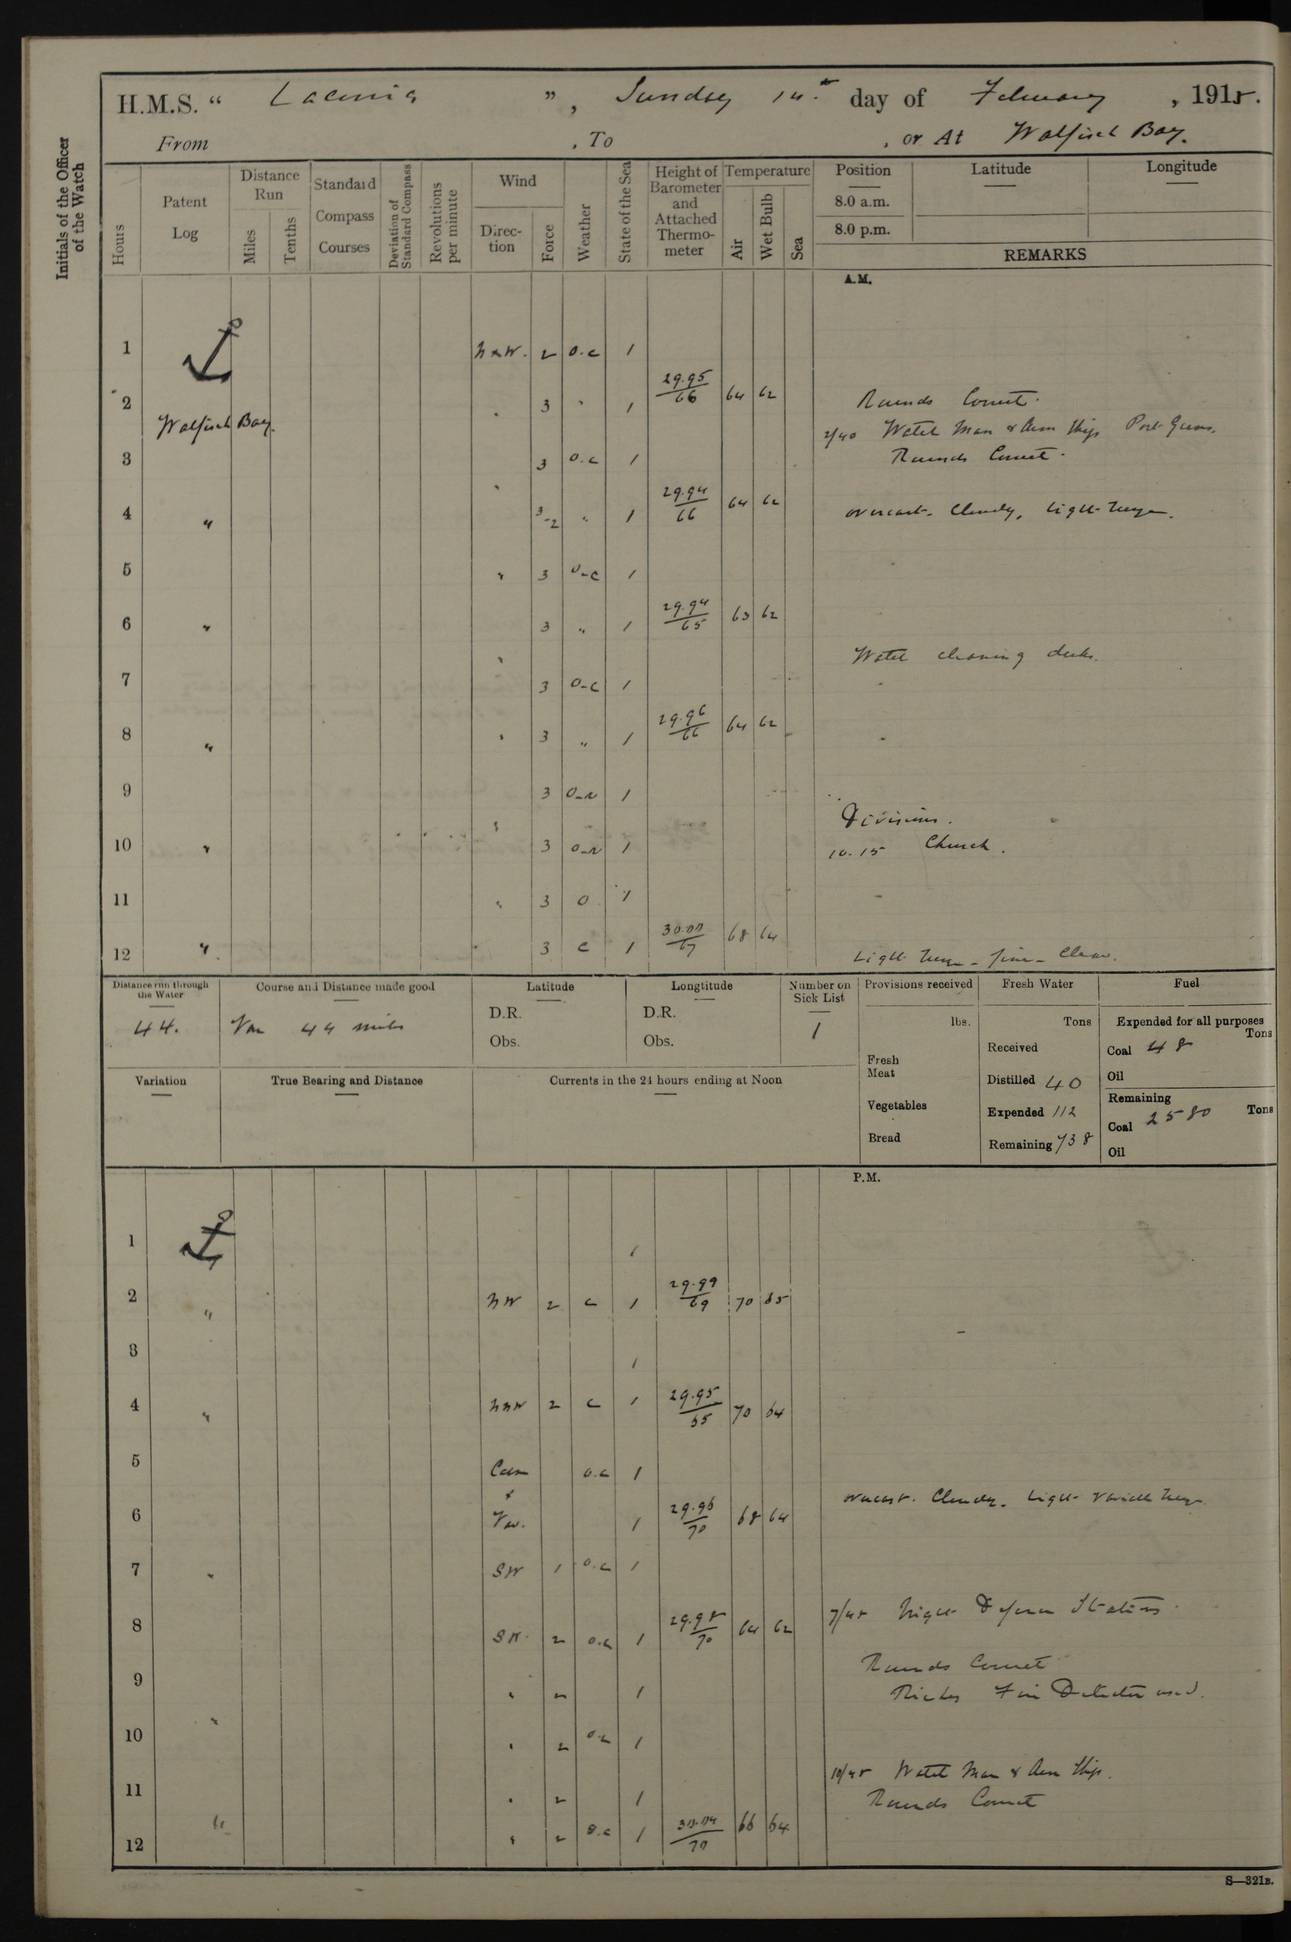 H.M.S. “ Laconia ”, Sunday 14th day of February, 1915.
From , To , or At Walfisch Bay.
Initials of the Officer of the Watch
Hours
Patent Log
Distance Run
Miles
Tenths
Standard Compass Courses
Deviation of Standard Compass
Revolutions per minute
Wind
Direction
Force
Weather
State of the Sea
Height of Barometer and Attached Thermometer
Temperature
Air
Wet Bulb
Sea
Position
8.0 a.m.
8.0 p.m.
Latitude
Longitude
REMARKS
A.M.
1 2 o.c 1
2 " 3 " 1 29.95/66 64 62 Rounds Correct.
Walfisch Bay.
2/40 Watch Man & Arm Ship Port Guns.
3 3 o.c 1 Rounds Correct.
4 " " 3-2 " 1 29.94/66 64 62 overcast. Cloudy, Light
5 " 3 o-c 1
6 " 3 " 1 29.94/65 63 62
Watch cleaning decks.
7 " 3 o-c 1
8 " " 3 " 1 29.96/66 64 62
9 3 1
Divisions.
10 " " 3 1 10.15 Church.
11 " 3 o 1
12 " " 3 c 1 30.00/67 68 64 Light fine - Clear.
Distance run through the Water
44.
Course and Distance made good
Var 44 miles
Latitude
D.R.
Obs.
Longtitude
D.R.
Obs.
Number on Sick List
1
Provisions received
lbs.
Fresh Meat
Vegetables
Bread
Fresh Water
Tons
Received
Distilled 40
Expended 112
Remaining 738
Fuel
Expended for all purposes
Tons
Coal 48
Oil
Remaining
Tons
Coal 2580
Oil
Variation
True Bearing and Distance
Currents in the 24 hours ending at Noon
P.M.
1 1
2 " NW 2 c 1 29.99/69 70 65
3 1
4 " NNW 2 c 1 29.95/65 70 64
5 Calm o.c 1
overcast. Cloudy. Light
6 & Var. 1 29.96/70 68 64
7 " SW 1 o.c 1
7/45 Night Defence Stations.
8 SW. 2 o.c 1 29.98/70 64 62
Rounds Correct
9 " 2 1 Riches Fire Detector used.
10 " " 2 o.c 1
10/45 Watch Man & Arm Ship.
11 " 2 1 Rounds Correct
12 " " 2 o.c 1 30.04/70 66 64
S—321B.